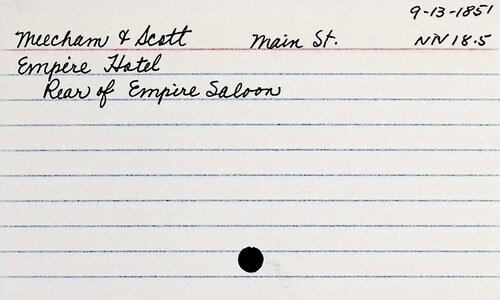 9-13-1851
Meecham & Scott Main St. NN 18.5
Empire Hotel
Rear of Empire Saloon